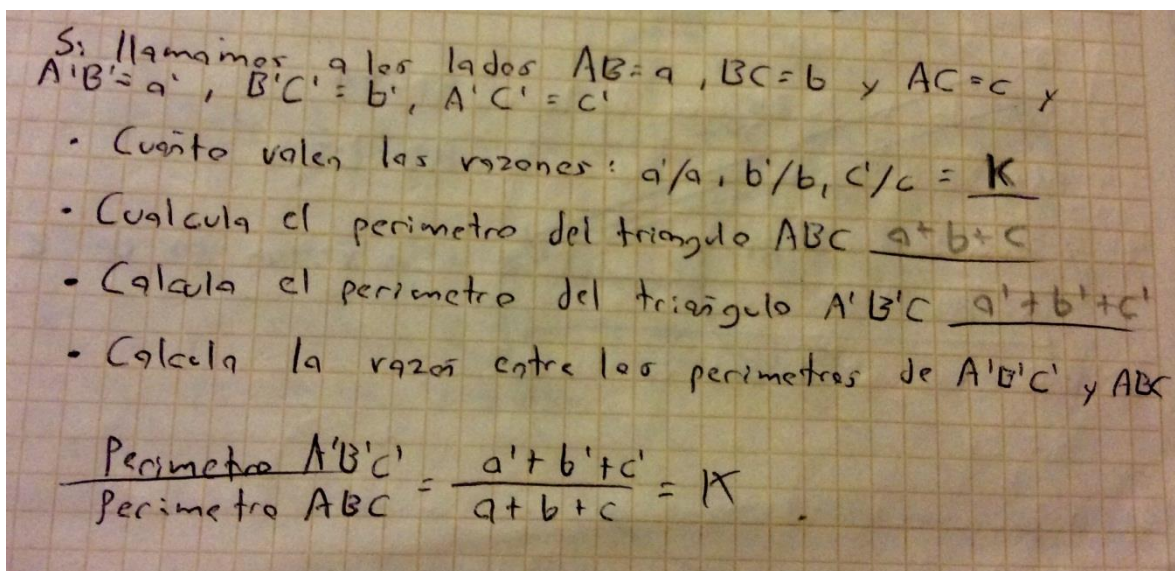 Si llamaimos a los lados AB=a, BC=b y AC=c y
A'B'=a', B'C'=b', A'C'=c'
• Cuanto valen las razones: a'/a, b'/b, c'/c = K
• Cualcula el perimetro del triangulo ABC a+b+c
• Calcula el perimetro del triangulo A'B'C a'+b'+c'
• Calcula la razon entre los perimetros de A'B'C' y ABC
Perimetro A'B'C' / Perimetro ABC = a'+b'+c' / a+b+c = K.